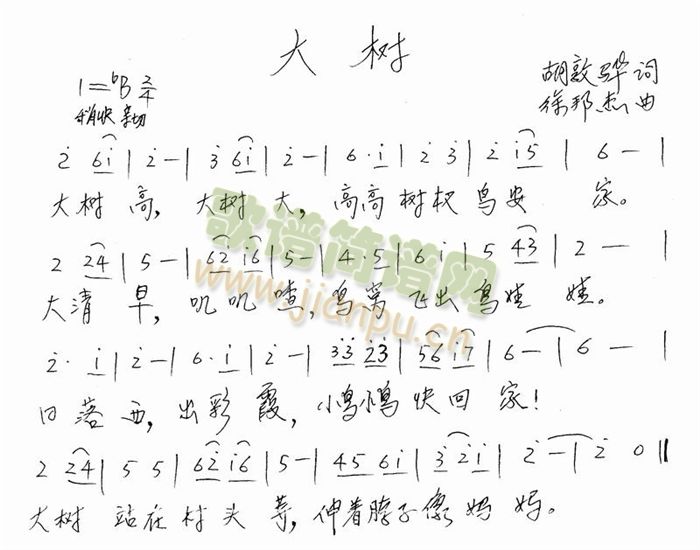 大树
1=♭B 2/4
胡敦骅 词
稍快 亲切
徐邦杰 曲
2̇ 6i̇ | 2̇ - | 3̇ 6i̇ | 2̇ - | 6 · i̇ | 2̇ 3̇ | 2̇ i̇5 | 6 - |
大树 高, 大树 大, 高高 树杈 鸟安 家。
歌谱简谱网
www.jianpu.cn
2 24 | 5 - | 62̇ i̇6 | 5 - | 4·5 | 6 i̇ | 5 43 | 2 - |
大清 早, 叽叽 喳, 鸟窝 飞出 鸟娃 娃。
2̇· i̇ | 2̇ - | 6· i̇ | 2̇ - | 3̇3̇ 2̇3̇ | 56 i̇7 | 6 - | 6 - |
日落 西, 出彩 霞, 小鸟小鸟 快回 家!
2 24 | 5 5 | 62̇ i̇6 | 5 - | 45 6i̇ | 3̇ 2̇i̇ | 2̇ - | 2̇ 0 ‖
大树 站在 村头 等, 伸着脖子 像妈 妈。